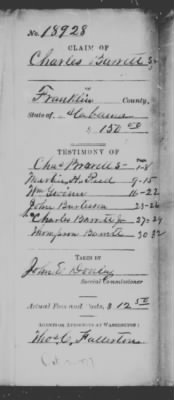 No. 18928
CLAIM OF
Charles Barrett Sr
OF
Franklin County,
State of Alabama
$ 150 00
TESTIMONY OF
Page
Chas Barrett Sr 1-8
Martin H. 9-15
Wm Gwinn 16-22
John Burleson 23-26
Charles Barrett Jr 27-29
Thompson Barrett 30-32
TAKEN BY
John E.
Special Commissioner
Actual Fees and Costs, $ 12 50
AGENT OR ATTORNEY AT WASHINGTON:
Thos C. Fullerton